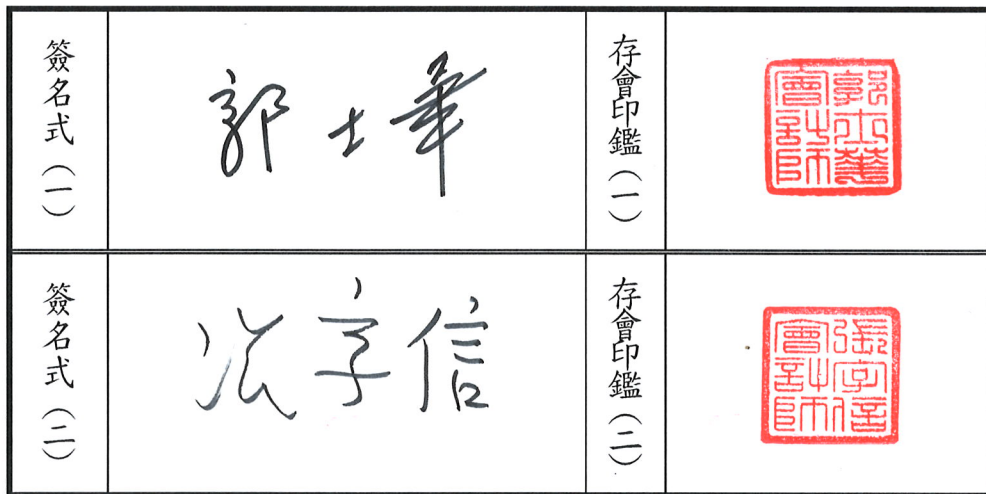 簽名式（一）
郭士華
存會印鑑（一）
郭士華會計師
簽名式（二）
張字信
存會印鑑（二）
張字信會計師